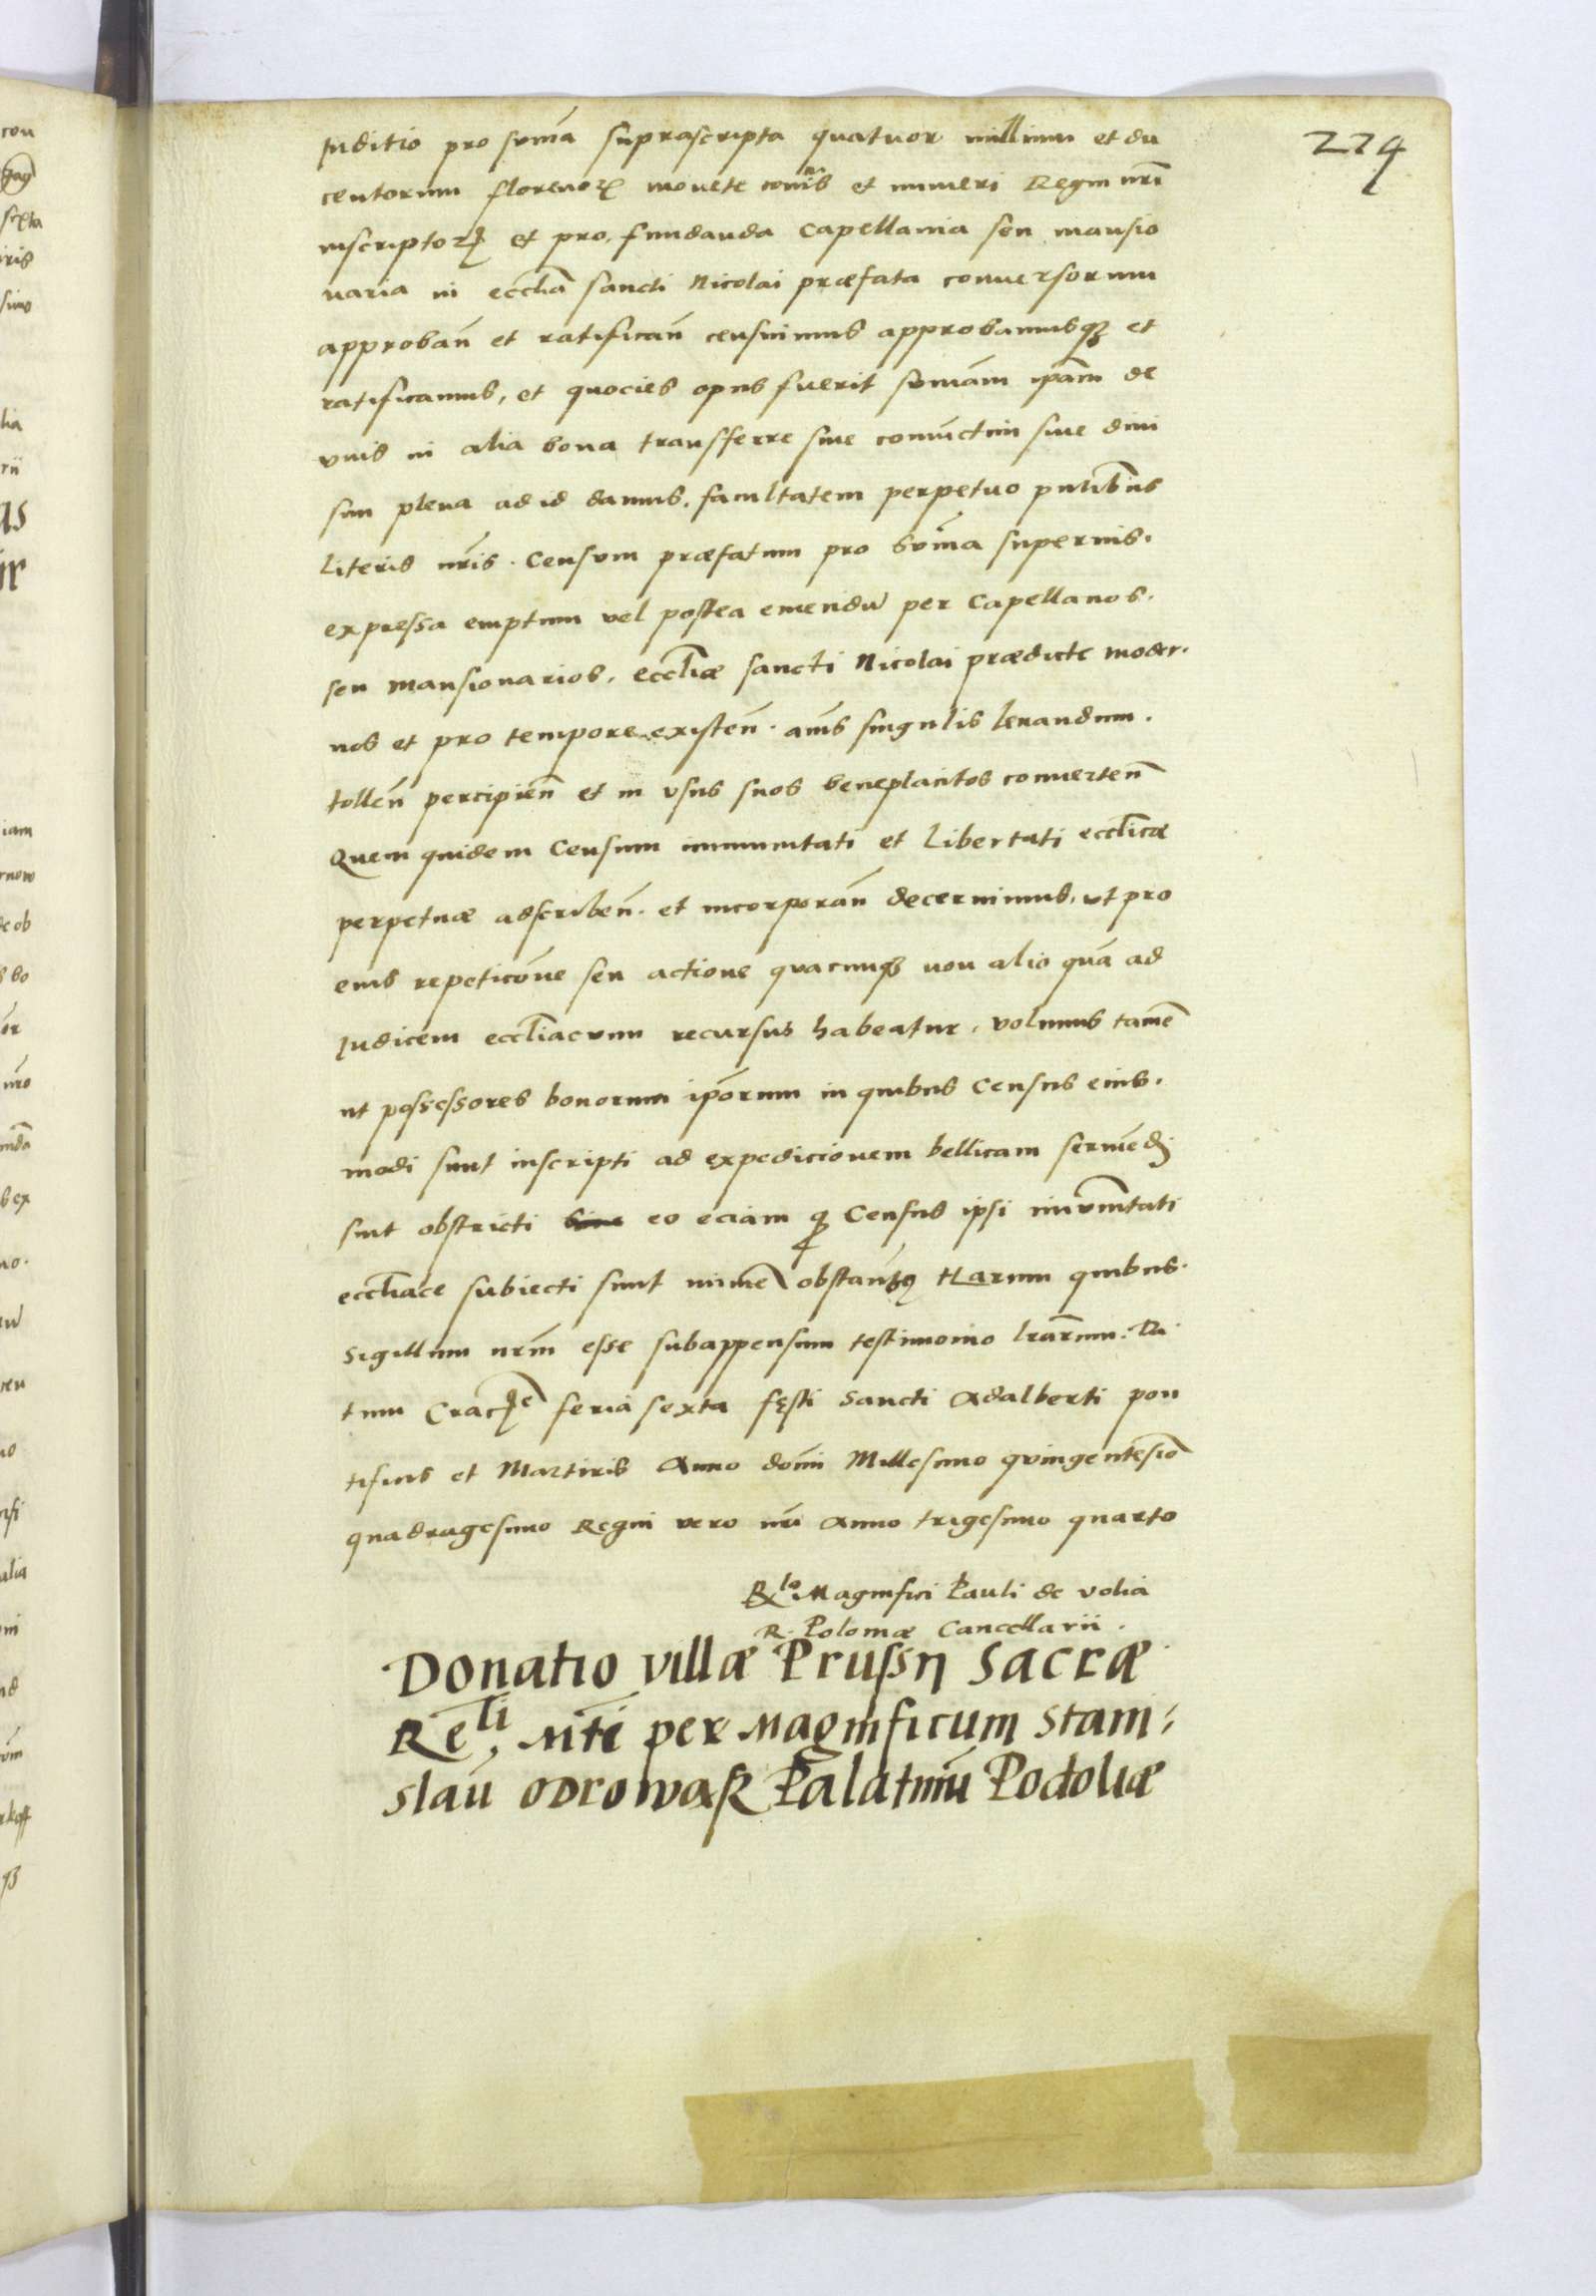 224
Juditio pro somã suprascripta quatuor millium et du
centorum florenoꝝ monete com̃is et numeri Regni nrĩ
inscriptoꝝ et pro fundanda Capellania seu mansio
naria in eccłia sancti Nicolai præfata conuersorum
approbañ et ratificañ censuimus approbamusqꝫ et
ratificamus, et quocies opus fuerit somãm ipãm de
vnis in alia bona transferre siue coniũctim siue diui
sim plena ad id damus facultatem perpetuo pntibus
Literis nrĩs. Censum præfatum pro somã superius
expressa emptum vel postea emendũ per Capellanos
seu mansionarios eccłiæ sancti Nicolai prædicte moder
nos et pro tempore existeñ. annis singulis leuandum
tolleñ percipieñ et in vsus suos beneplacitos conuerteñ
Quem quidem Censum immunitati et Libertati eccłicæ
perpetuæ adscribeñ et incorporañ decernimus, ut pro
eius repeticõne seu actione quacunqꝫ non alio quã ad
Judicem eccłiacum recursus habeatur, volumus tamẽ
ut possessores bonorum ipõrum in quibus Census eius
modi sunt inscripti ad expedicionem bellicam seruiẽdi
sint obstricti eo eciam ꝙ Census ipsi imũnitati
eccłiace subiecti sunt minimẽ obstanteꝫ Harum quibus
Sigillum nrũm esse subappensum testimonio lrãrum. Da
tum Cracouie feria sexta festi Sancti Adalberti pon
tificis et Martiris Anno domĩ Millesimo quingentesiõ
quadragesimo Regni vero nrĩ Anno trigesimo quarto
Rlo Magnifici Pauli de volia
R. Poloniæ Cancellarii.
Donatio villæ Prussy Sacræ
Reli. Mti per Magnificum Stani⸗
slaũ Odrowasz Palatinũ Podoliæ